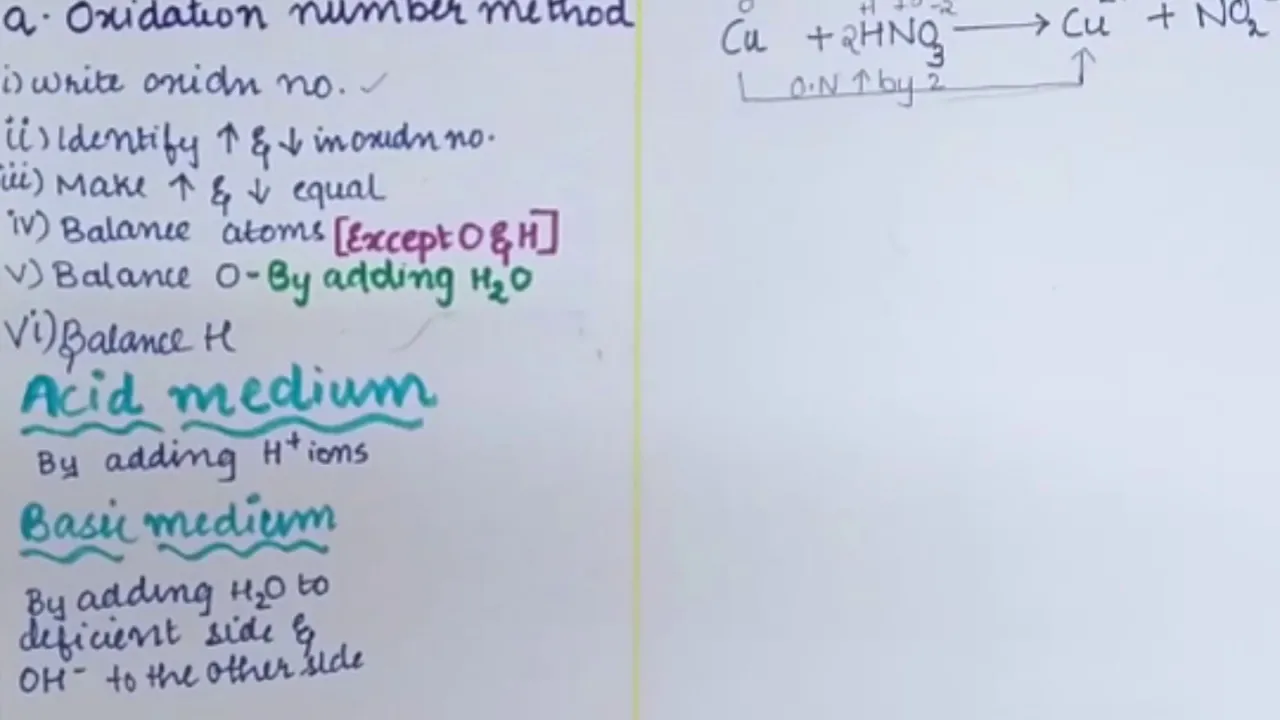 a. Oxidation number method
i) Write oxidn no. ✓
ii) Identify ↑ & ↓ in oxidn no.
iii) Make ↑ & ↓ equal
iv) Balance atoms [Except O & H]
v) Balance O - By adding H₂O
vi) Balance H
Acid medium
By adding H⁺ ions
Basic medium
By adding H₂O to
deficient side &
OH⁻ to the other side
0
Cu + 2HNO₃ → Cu + NO₂
O.N ↑ by 2